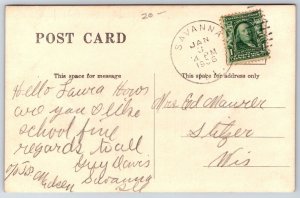 20-
POST CARD
SAVANNA
JAN
4 PM
1908
This space for message
This space for address
Hello Laura How
are you I like
school fine
regards to all
Guy Davis
Savanna
Ill
Mrs Ed Maurer
Stitzer
Wis